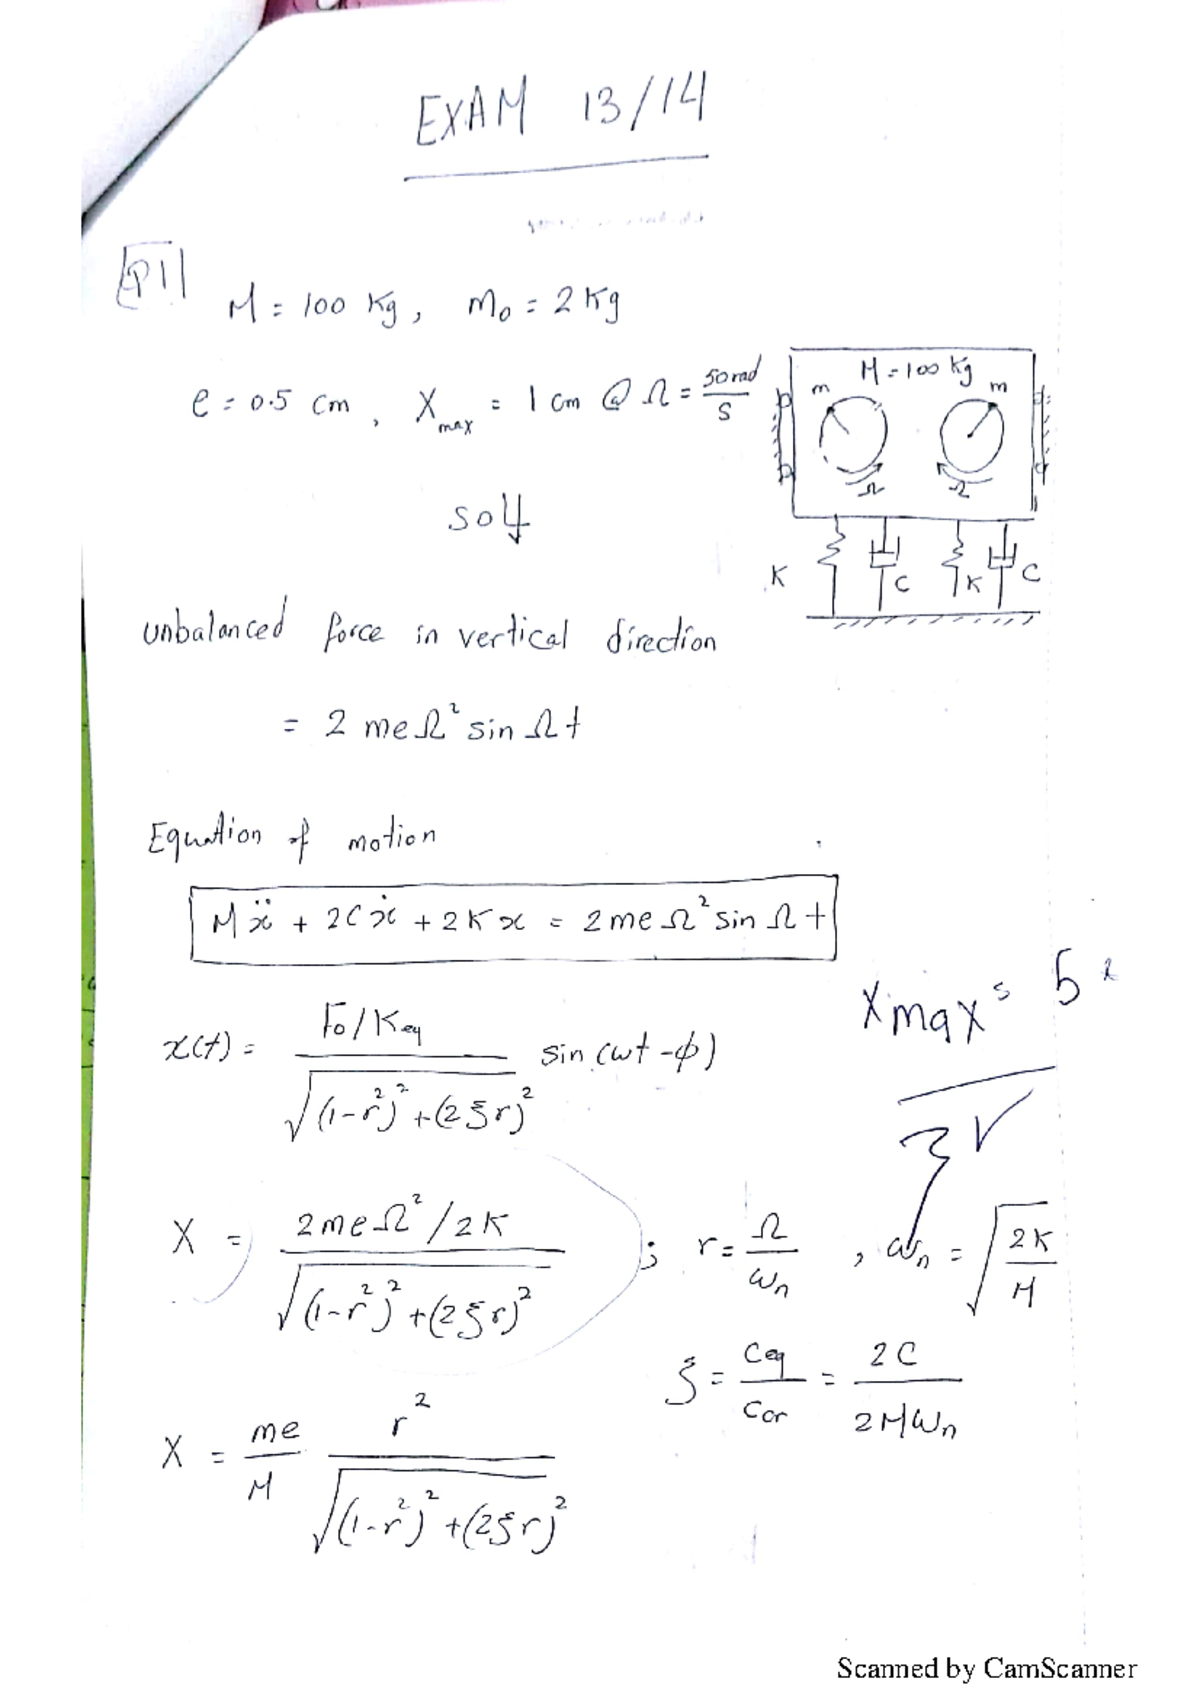 EXAM 13/14
P1
M = 100 Kg, m₀ = 2 Kg
e = 0.5 cm, Xmax = 1 cm @ Ω = 50 rad/s
M = 100 Kg
m m
Ω Ω
K C K C
unbalanced force in vertical direction
= 2 meΩ² sin Ωt
Equation of motion
Mẍ + 2Cẋ + 2Kx = 2meΩ² sin Ωt
x(t) = (Fo/Keq) / √((1-r²)² + (2ξr)²) sin (ωt - ϕ)
Xmax =
X = (2meΩ²/2K) / √((1-r²)² + (2ξr)²) ; r = Ω/ωn , ωn = √(2K/M)
ξ = Ceq/Ccr = 2C/2Mωn
X = me/M r² / √((1-r²)² + (2ξr)²)
Scanned by CamScanner